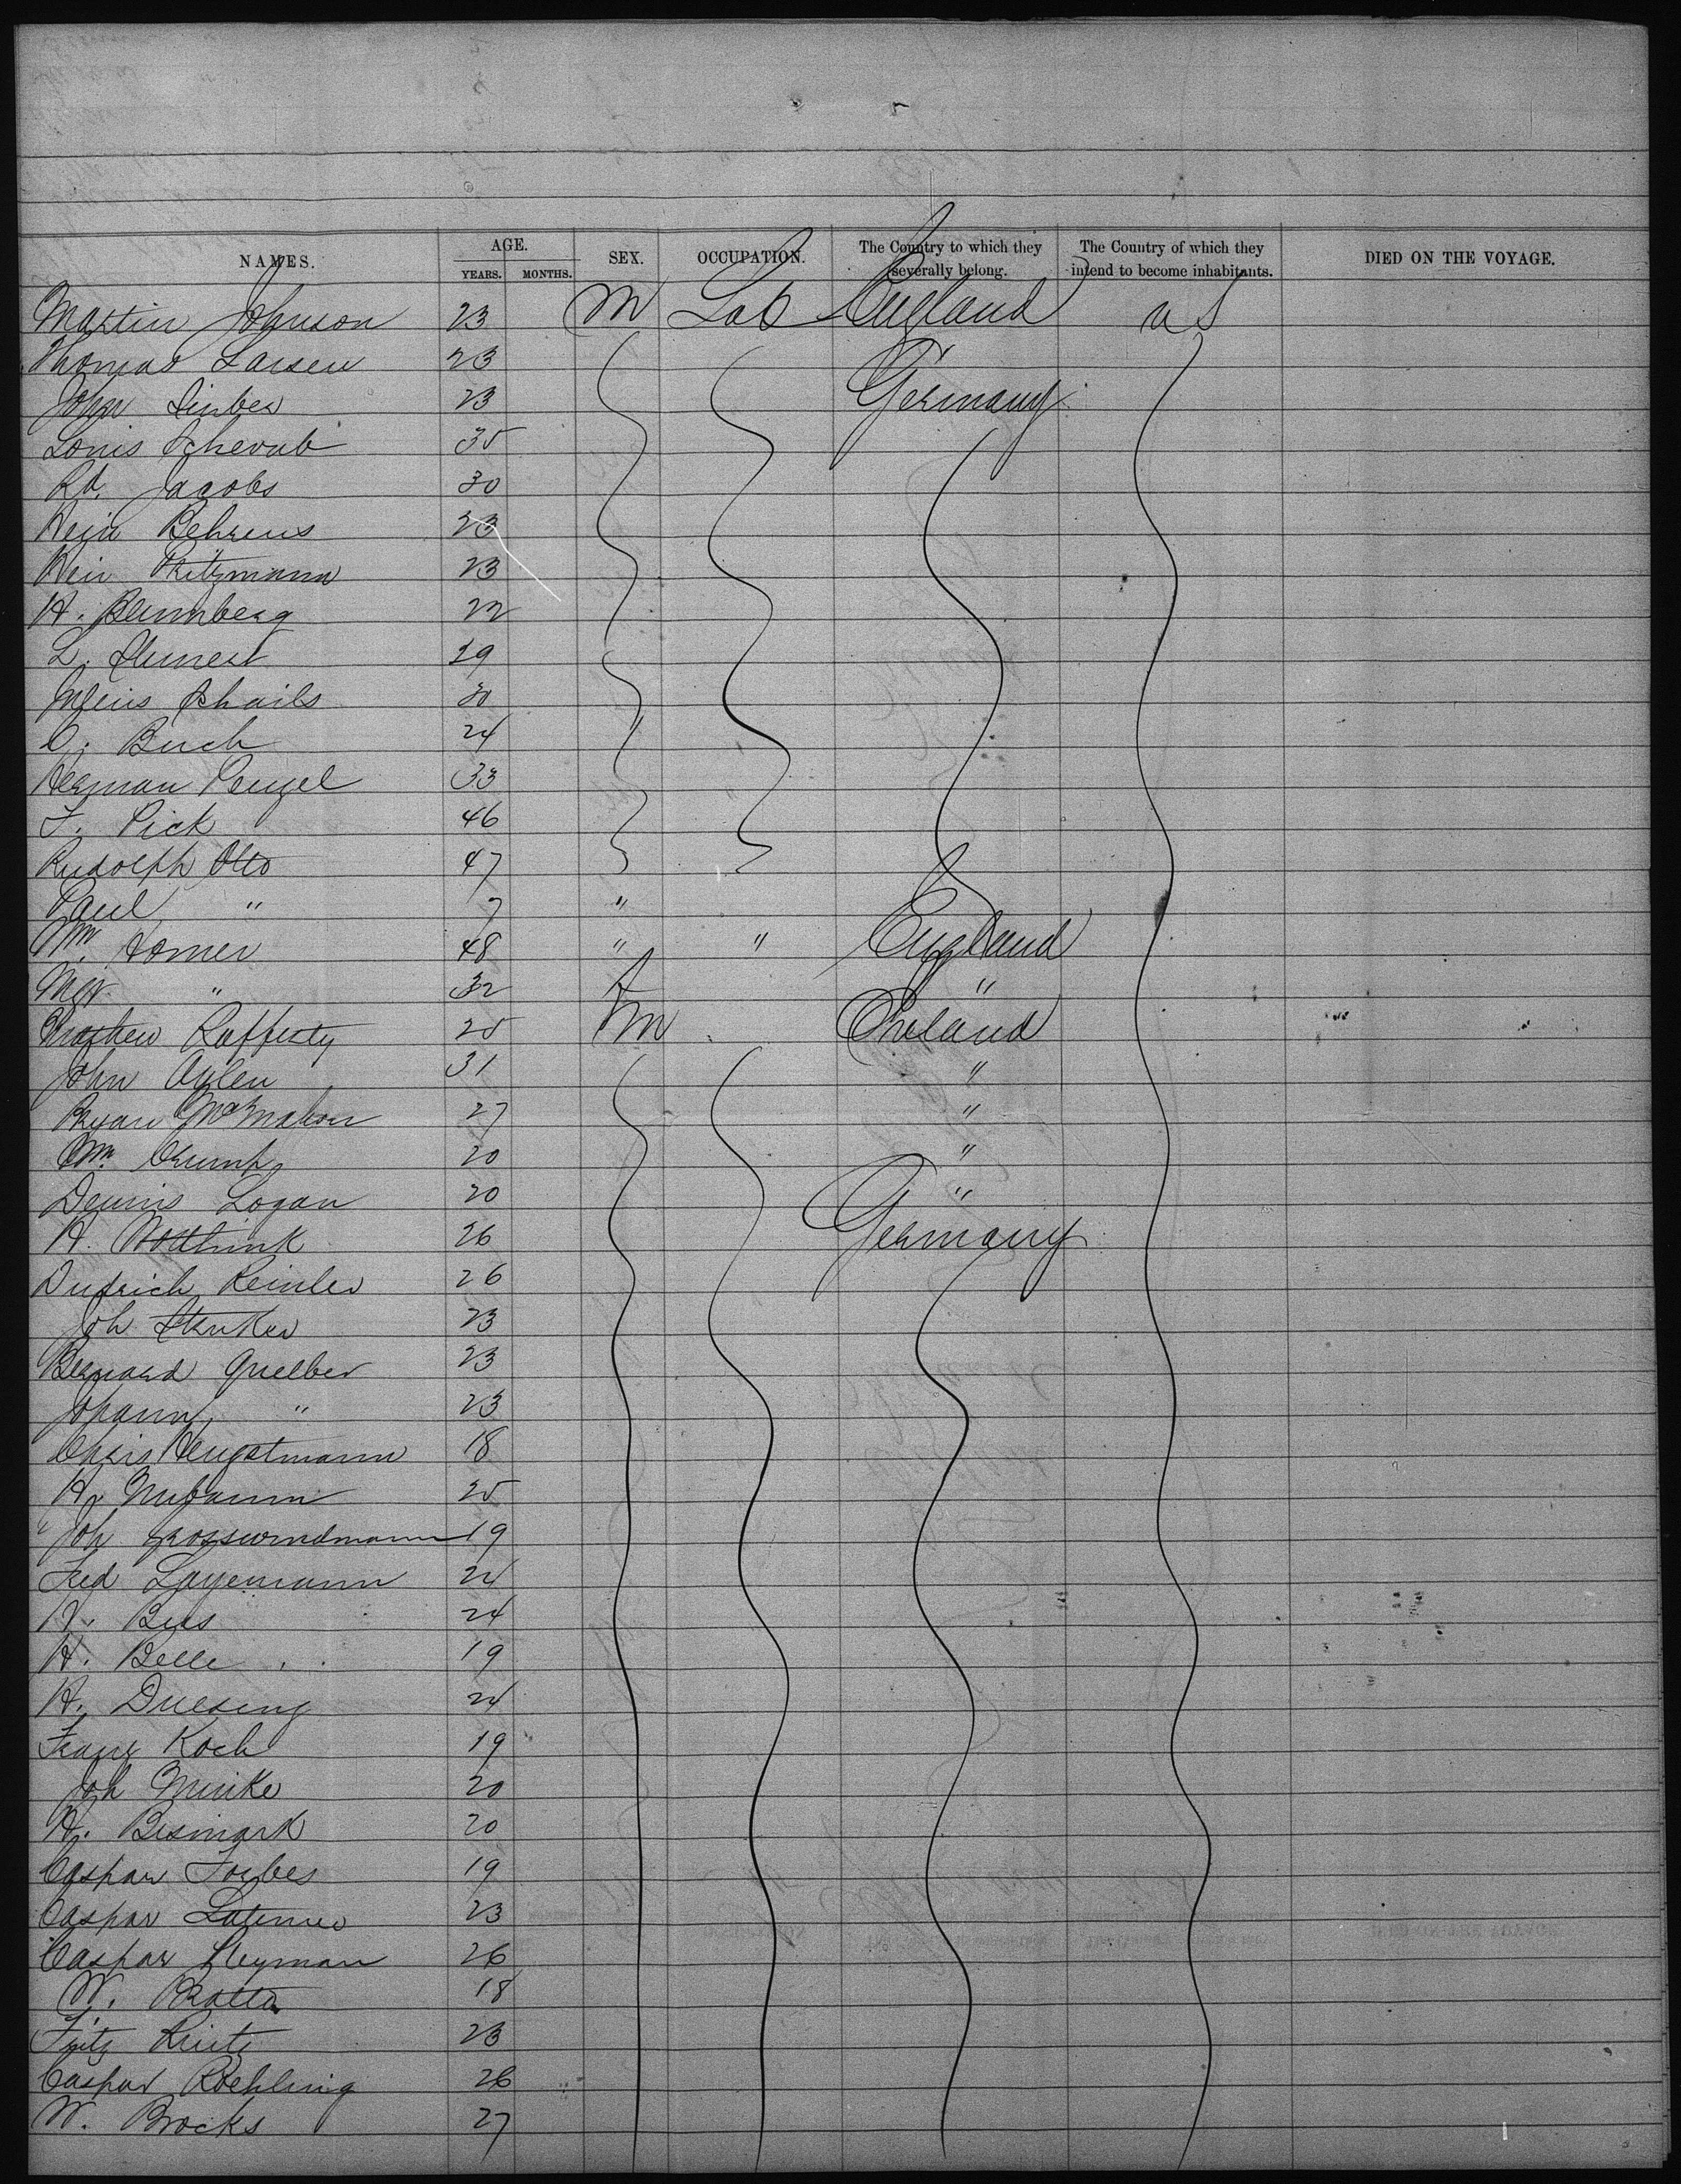 NAMES. AGE. SEX. OCCUPATION. The Country to which they severally belong. The Country of which they intend to become inhabitants. DIED ON THE VOYAGE.
YEARS. MONTHS.
Martin Johnson 23 M Lab England U S
Thomas Larsen 23
John 23 Germany
Louis Schwab 35
Rd. Jacobs 30
Hein Behrens 23
Hein Pritzmann 23
H. Blumberg 22
L. 29
30
C. Buch 24
Herman Pengel 33
F. Pick 46
Rudolph Otto 47
Paul " 7 "
Wm. 48 " " England
Mgr. " 32 f "
Mathew Rafferty 25 m Ireland
John 31 "
Bryan McMahon 27 "
Wm. Crump 20 "
Dennis Logan 20 "
H. 26 Germany
Diedrich 26
Joh 23
Bernard 23
Johann " 23
Chris Hengstmann 18
H. 25
Joh Grosswindmann 19
Fred Lagemann 24
H. 24
H. Belle 19
H. Duesing 24
Franz Koch 19
Joh 20
H. Bismark 20
Caspar Forbes 19
Caspar 23
Caspar Heyman 26
W. 18
Fritz 23
Caspar Roehling 26
W. Brocks 27